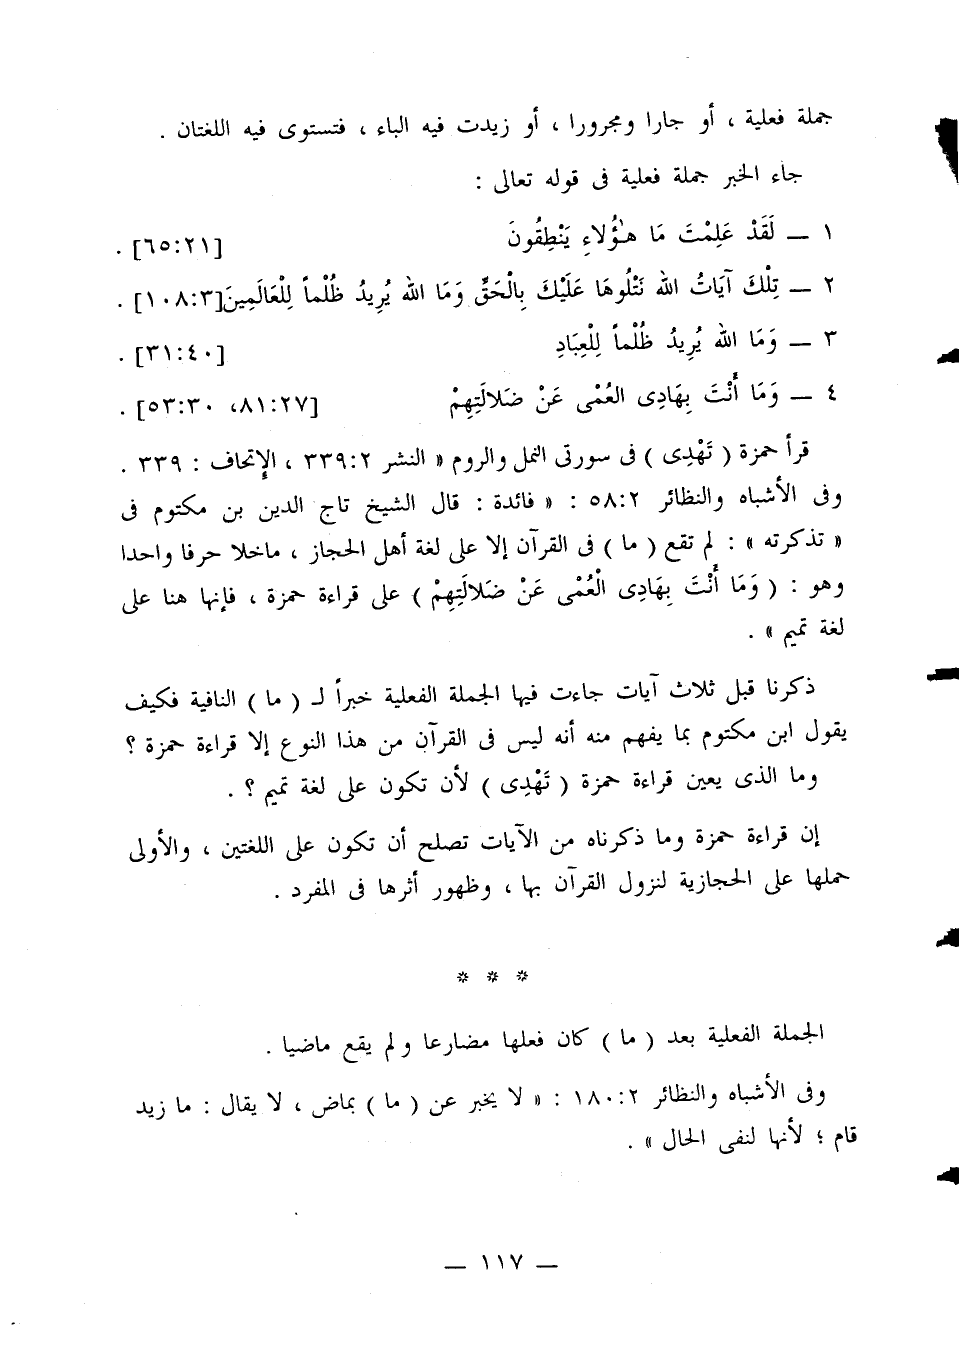 جملة فعلية ، أو جارا ومجرورا ، أو زيدت فيه الباء ، فتستوى فيه اللغتان .
جاء الخبر جملة فعلية فى قوله تعالى :
١ — لَقَدْ عَلِمْتَ مَا هٰؤُلاءِ يَنْطِقُونَ [٦٥:٢١] .
٢ — تِلْكَ آيَاتُ الله نَتْلُوهَا عَلَيْكَ بِالْحَقِّ وَمَا الله يُرِيدُ ظُلْماً لِلْعَالَمِينَ[١٠٨:٣] .
٣ — وَمَا الله يُرِيدُ ظُلْماً لِلْعِبَادِ [٣١:٤٠] .
٤ — وَمَا أَنْتَ بِهَادِى العُمْى عَنْ ضَلالَتِهِمْ [٨١:٢٧، ٥٣:٣٠] .
قرأ حمزة ( تَهْدِى ) فى سورتى النمل والروم « النشر ٣٣٩:٢ ، الإتحاف : ٣٣٩ .
وفى الأشباه والنظائر ٥٨:٢ : « فائدة : قال الشيخ تاج الدين بن مكتوم فى
« تذكرته » : لم تقع ( ما ) فى القرآن إلا على لغة أهل الحجاز ، ماخلا حرفا واحدا
وهو : ( وَمَا أَنْتَ بِهَادِى الْعُمْى عَنْ ضَلالَتِهِمْ ) على قراءة حمزة ، فإنها هنا على
لغة تميم » .
ذكرنا قبل ثلاث آيات جاءت فيها الجملة الفعلية خبراً لـ ( ما ) النافية فكيف
يقول ابن مكتوم بما يفهم منه أنه ليس فى القرآن من هذا النوع إلا قراءة حمزة ؟
وما الذى يعين قراءة حمزة ( تَهْدِى ) لأن تكون على لغة تميم ؟ .
إن قراءة حمزة وما ذكرناه من الآيات تصلح أن تكون على اللغتين ، والأولى
حملها على الحجازية لنزول القرآن بها ، وظهور أثرها فى المفرد .
* * *
الجملة الفعلية بعد ( ما ) كان فعلها مضارعا ولم يقع ماضيا .
وفى الأشباه والنظائر ١٨٠:٢ : « لا يخبر عن ( ما ) بماض ، لا يقال : ما زيد
قام ؛ لأنها لنفى الحال » .
— ١١٧ —